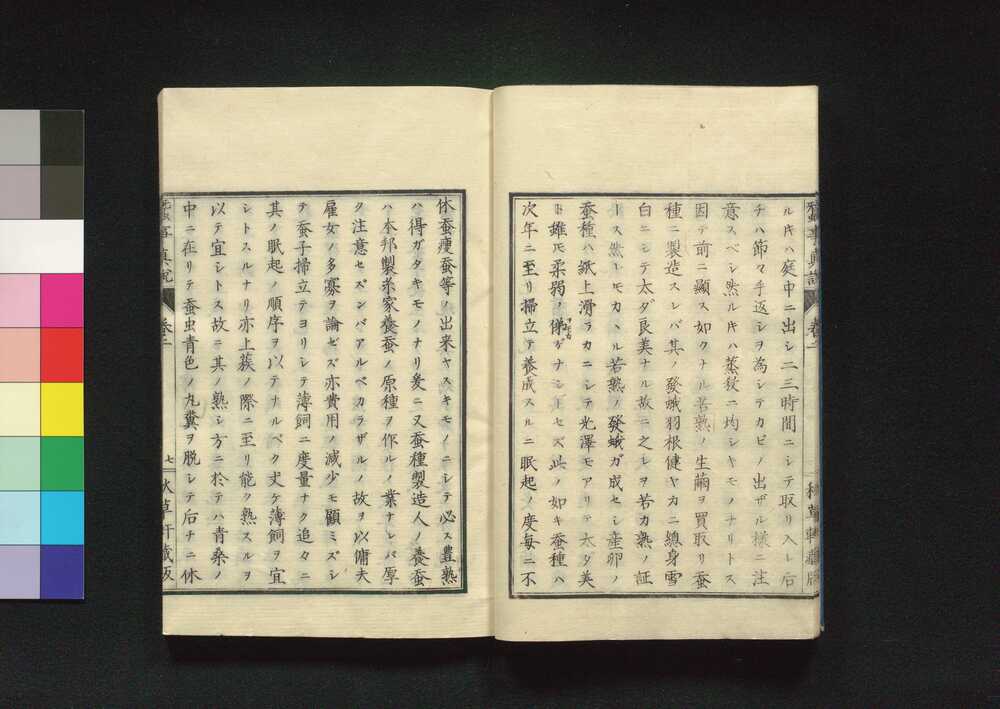 蚕事真説 巻二 秋草軒蔵版
ルキハ庭中ニ出シ二三時間ニシテ取リ入レ后
チハ節々手返シヲ為シテカビノ出ザル様ニ注
意スベシ然ルキハ蒸殺ニ灼シキモノナリトス
因テ前ニ顯ス如クナル苦熟ノ生繭ヲ買取リ蚕
種ニ製造スレバ其ノ發蛾羽根健ヤカニ總身雪
白ニシテ太ダ良美ナル故ニ之レヲ若カ熟ノ証
トス然レモカヽル若熟ノ發蛾ガ成セシ産卵ノ
蚕種ハ紙上滑ラカニシテ光澤モアリテ太ダ美
ト雖モ柔弱ノ ナシトセズ此ノ如キ蚕種ハ
次年ニ至リ掃立テ養成スルニ眠起ノ度毎ニ不
休蚕痩蚕等ノ出来ヤスキモノニシテ必ス豊熟
ハ得ガタキモノナリ爰ニ又蚕種製造人ノ養蚕
ハ本邦製糸家養蚕ノ原種ヲ作ルノ業ナレバ厚
ク注意セズンバアルベカラザルノ故ヲ以傭夫
雇女ノ多寡ヲ論ゼズ亦費用ノ減少モ顧ミズシ
テ蚕子掃立テヨリシテ薄飼ニ度量ナク追々ニ
其ノ眠起ノ順序ヲ以テナルベク丈ケ薄飼ヲ宜
シトスルナリ亦上蔟ノ際ニ至リ能ク熟スルヲ
以テ宜シトス故ニ其ノ熟シ方ニ於テハ青桑ノ
中ニ在リテ蚕虫青色ノ丸糞ヲ脱シテ后チニ休
蚕事真説 巻二 七 秋草軒蔵版